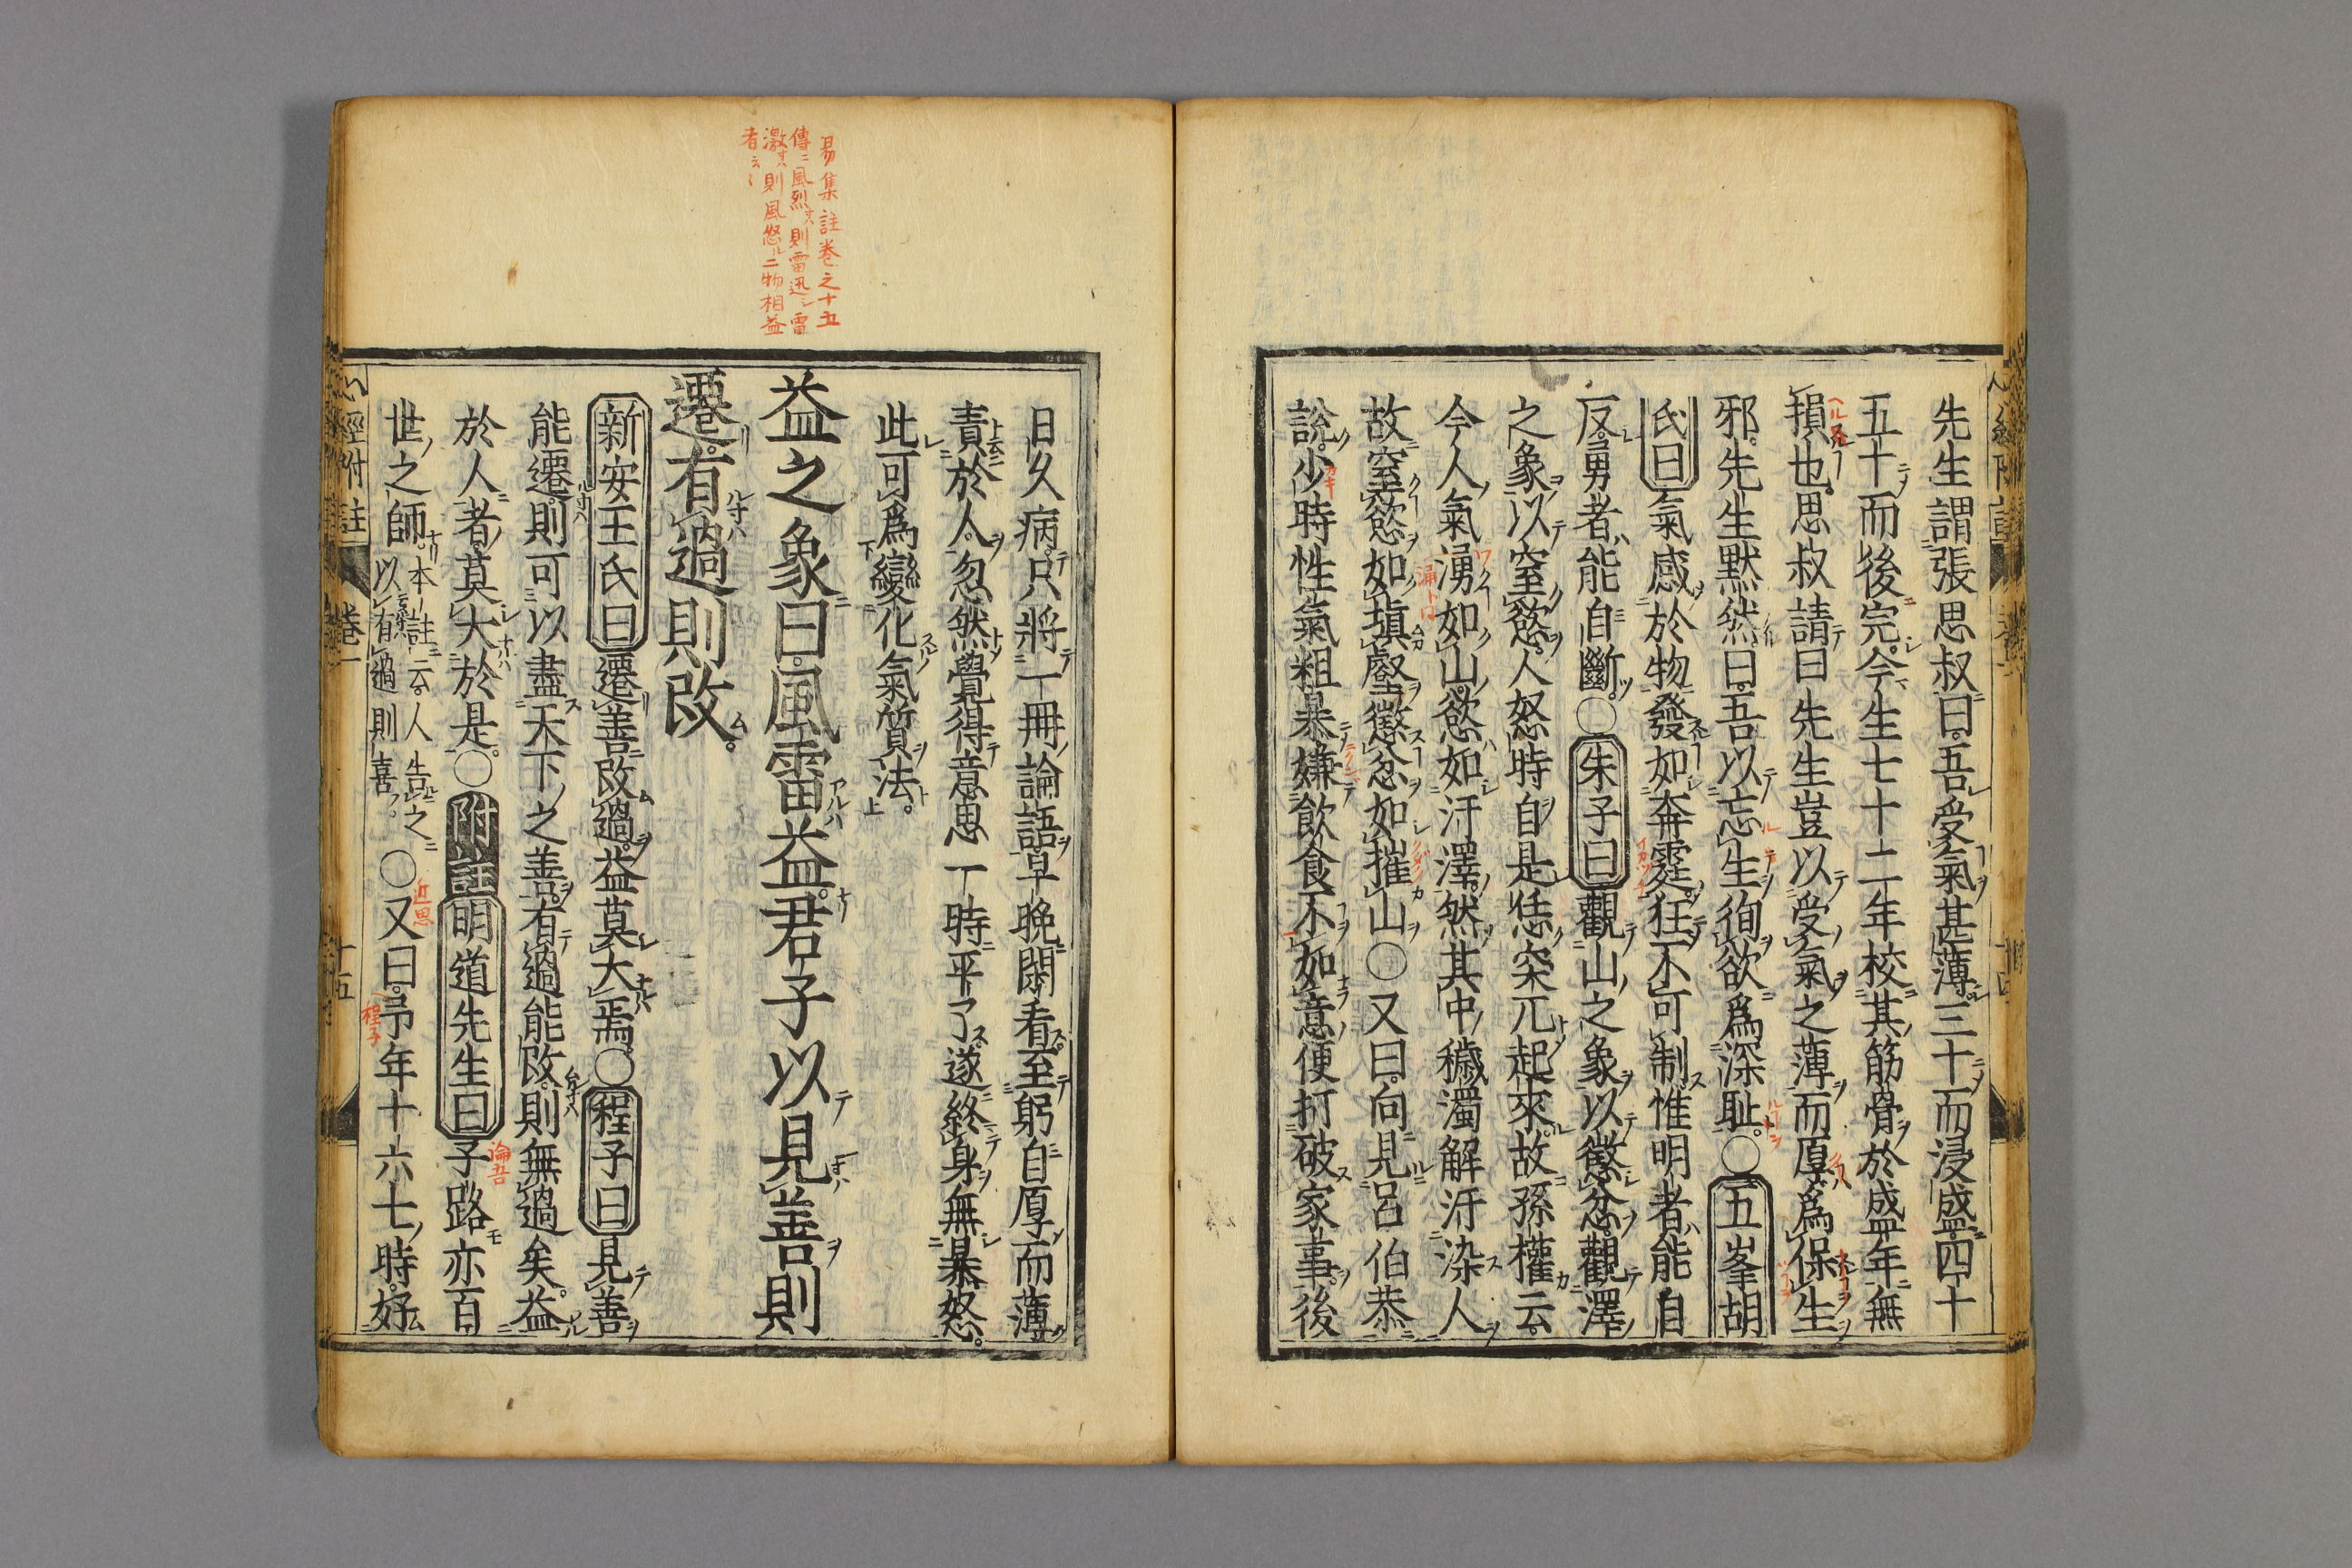 先生謂張思叔曰吾受氣甚薄三十而浸盛四十
五十而後完今生七十二年校其筋骨於盛年無
損也思叔請曰先生豈以受氣之薄而厚爲保生
邪先生默然曰吾以忘生徇欲爲深耻○五峯胡
氏曰氣感於物發如奔霆狂不可制惟明者能自
反勇者能自斷○朱子曰觀山之象以懲忿觀澤
之象以窒慾人怒時自是恁突兀起來故孫權云
今人氣湧如山慾如汙澤然其中穢濁解汙染人
故窒慾如塡壑懲忿如摧山○又曰向見呂伯恭
說少時性氣粗暴嫌飲食不如意便打破家事後
日久病只將一冊論語早晩閑看至躬自厚而薄
責於人忽然覺得意思一時平了遂終身無暴怒
此可爲變化氣質法
益之象曰風雷益君子以見善則
遷有過則改
新安王氏曰遷善改過益莫大焉○程子曰見善
能遷則可以盡天下之善有過能改則無過矣益
於人者莫大於是○附註明道先生曰子路亦百
世之師本註云人告之以有過則喜○又曰予年十六七時好
心經附註 卷一 十五
易集註卷之十五
傳ニ風烈則雷迅シ雷
激則風怒ル二物相益
者云〻
論吾
近思
程子